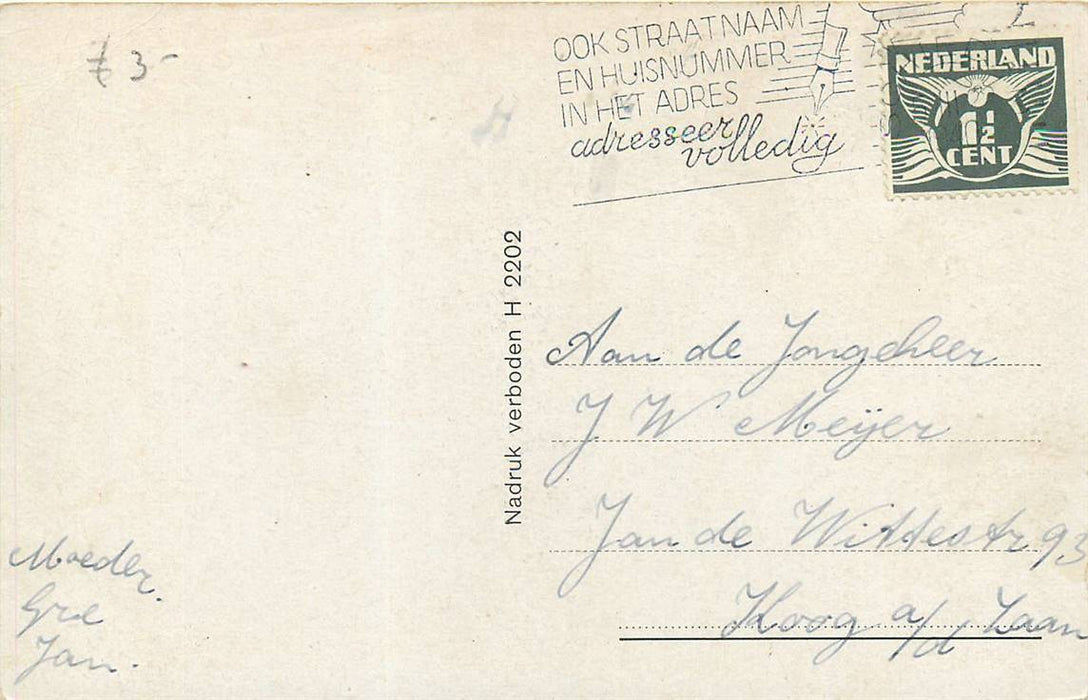 3-
OOK STRAATNAAM
EN HUISNUMMER
IN HET ADRES
adresseer
volledig
NEDERLAND
1½
CENT
Nadruk verboden H 2202
Aan de Jongeheer
J W Meijer
Jan de Wittestr 93
Koog a/d Zaan
Moeder.
Gre
Jan.